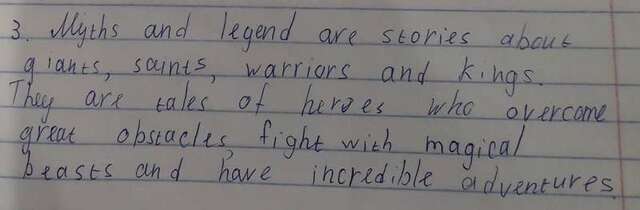 3. Myths and legend are stories about
giants, saints, warriors and kings.
They are tales of heroes who overcome
great obstacles, fight with magical
beasts and have incredible adventures.